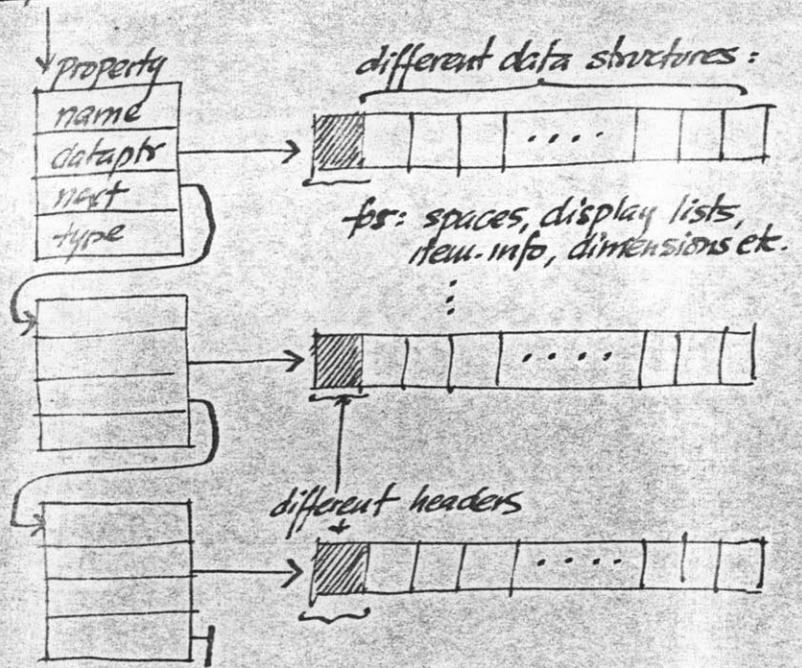 property
name
dataptr
next
type
different data structures:
....
for: spaces, display lists,
item-info, dimensions etc.
....
different headers
....